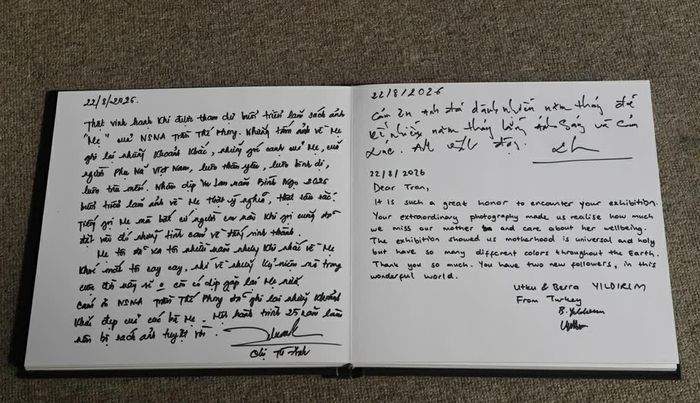 22/8/2026.
Thật vinh hạnh khi được tham dự buổi triển lãm sách ảnh
"Mẹ" của NSNA Trần Thế Phong. Những tấm ảnh về Mẹ
ghi lại những khoảnh khắc, những góc cạnh của Mẹ, của
người Phụ Nữ Việt Nam, luôn thân yêu, luôn bình dị,
luôn Nhân dịp Vu Lan năm Bính Ngọ 2026
buổi triển lãm ảnh về Mẹ thật ý nghĩa,
Tiếng gọi Mẹ mà bất cứ người con nào khi gọi cũng
đều những tình cảm về đấng sinh thành.
Mẹ tôi đã xa tôi nhiều năm nhưng khi nhắc về Mẹ
khóe mắt tôi cay cay, nhớ về những kỷ niệm mà trong
đó có dịp gặp lại Mẹ nữa
Cám ơn NSNA Trần Thế Phong đã ghi lại những khoảnh
khắc đẹp của các bà Mẹ - Một hành trình 25 năm làm
nên bộ sách ảnh tuyệt vời.
22/8/2026
Cám ơn anh đã dành nhiều năm tháng để
năm tháng bằng ánh sáng và cảm
xúc.
22/8/2026
Dear Tran,
It is such a great honor to encounter your exhibition.
Your extraordinary photography made us realise how much
we miss our mother and care about her wellbeing.
The exhibition showed us motherhood is universal and holy
but have so many different colors throughout the Earth.
Thank you so much. You have two new followers, in this
wonderful world.
Utku & Berra YILDIRIM
From Turkey